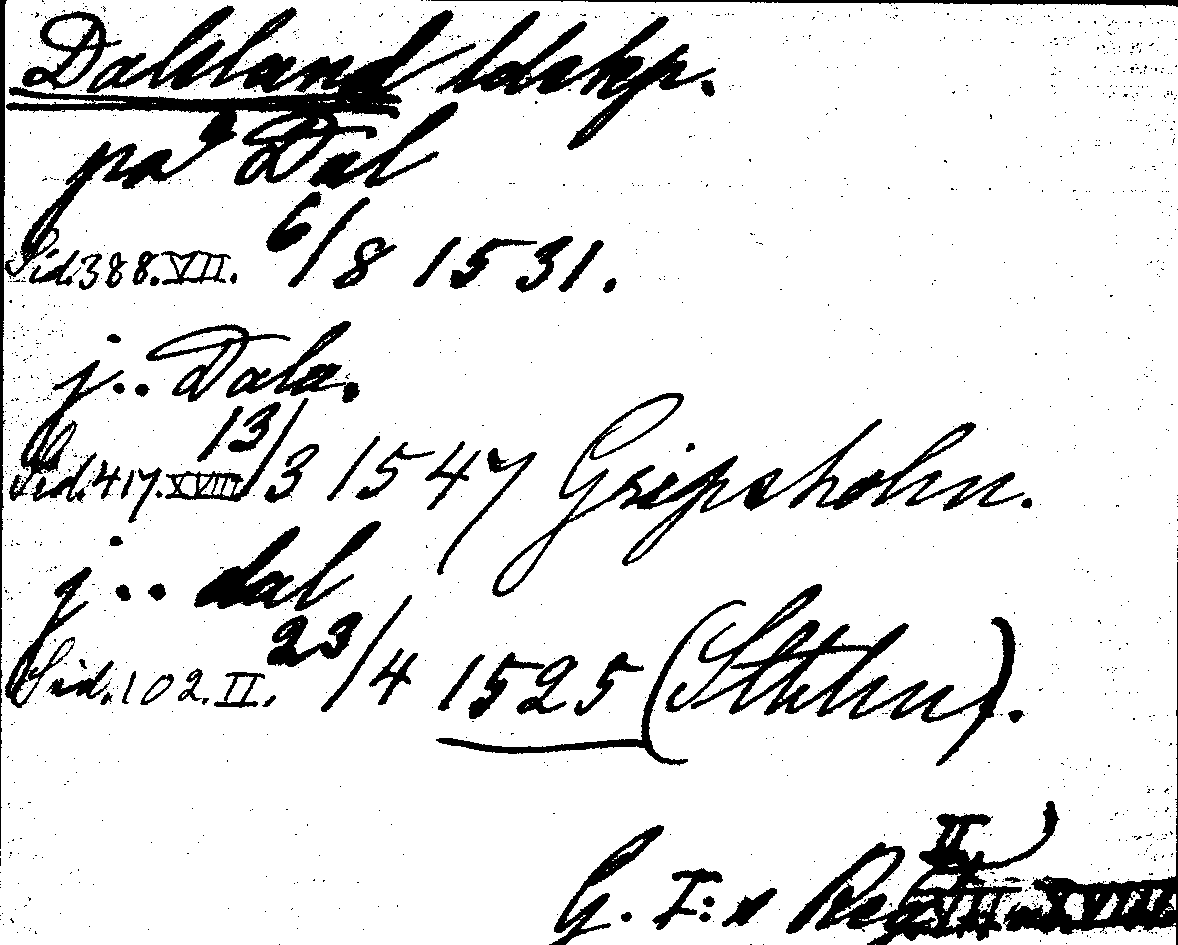 Dalsland ldskp.
på Dal
Sid. 388. VII. 6/8 1531.
j.. Dala.
Sid. 417. XVIII 13/3 1547 Gripsholm.
j.. dal
Sid. 102. II. 23/4 1525 (Sthlm).
II,
G. I:s Reg. VII o XVIII